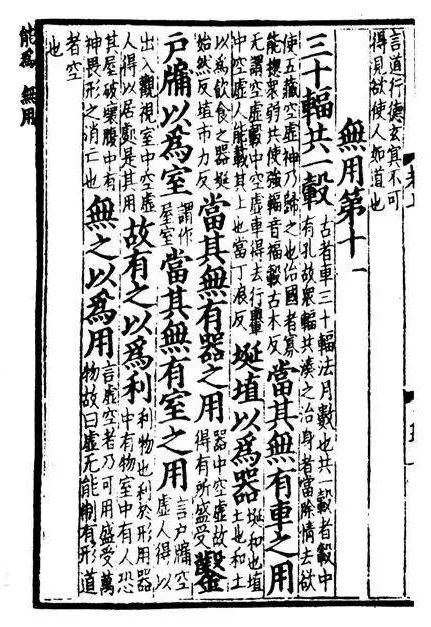 言道行德玄冥不可得見欲使人如道也
無用第十一
三十輻共一轂古者車三十輻法月數也共一轂者轂中有孔故衆輻共湊之治身者當除情去欲
使五藏空虛神乃歸之也治國者寡能揔衆弱共使強輻音福轂古木反當其無有車之用
无謂空虛轂中空虛車得去行轝中空虛人能載其上也當丁浪反埏埴以爲器埏和也埴土也和土
以爲飲食之器埏始然反埴市力反當其無有器之用器中空虛故得有所盛受鑿
戶牖以爲室謂作屋室當其無有室之用言戶牖空虛人得以
出入觀視室中空虛人得以居處是其用故有之以爲利利物也利於形用器中有物室中有人恐
其屋破壞腹中有神畏形之消亡也無之以爲用言虛空者乃可用盛受萬物故曰虛无能制有形道
者空也
能爲 無用